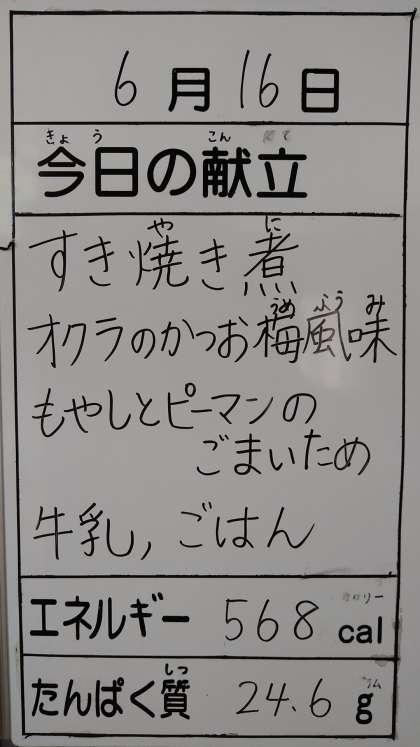 6月16日
きょう こん
今日の献立
や に
すき焼き煮
うめ ふう み
オクラのかつお梅風味
もやしとピーマンの
ごまいため
牛乳, ごはん
エネルギー 568 cal
しつ
たんぱく質 24.6 g